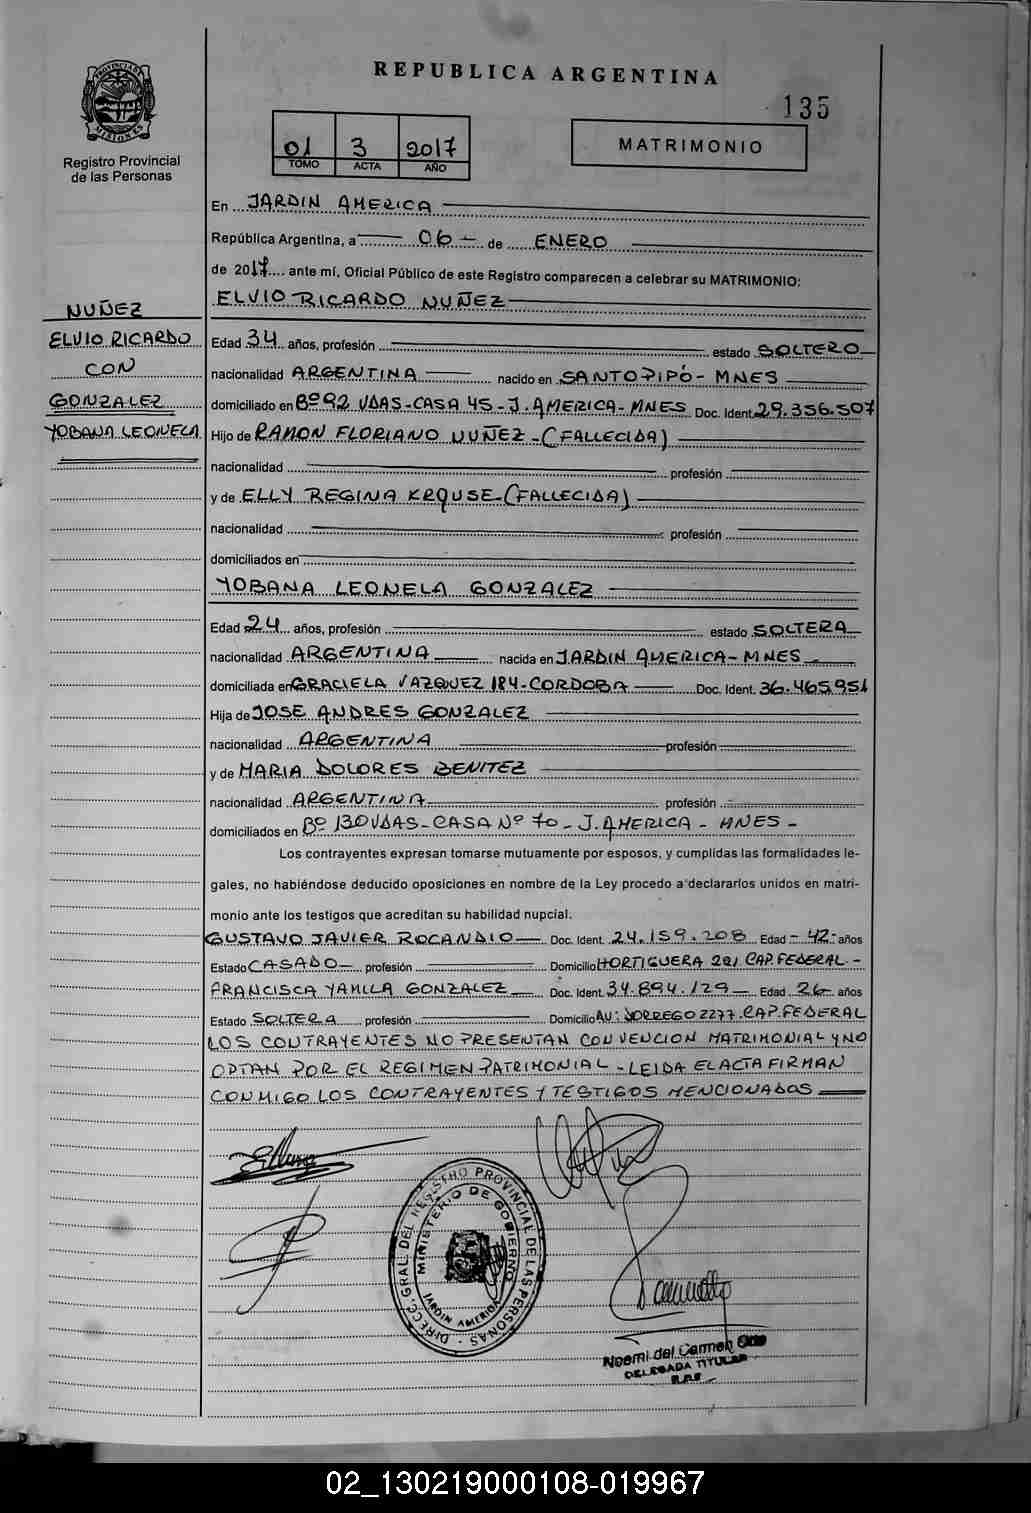 REPUBLICA ARGENTINA
135
PROVINCIA DE MISIONES
Registro Provincial
de las Personas
01 3 2017
TOMO ACTA AÑO
MATRIMONIO
En JARDIN AMERICA
República Argentina, a 06 de ENERO
de 2017 ante mí, Oficial Público de este Registro comparecen a celebrar su MATRIMONIO:
ELVIO RICARDO NUÑEZ
NUÑEZ
ELVIO RICARDO
CON
GONZALEZ
YOBANA LEONELA
Edad 34 años, profesión estado SOLTERO
nacionalidad ARGENTINA nacido en SANTO PIPÓ - MNES
domiciliado en Bº 92 VDAS-CASA 45-J. AMERICA-MNES Doc. Ident. 29.356.507
Hijo de RAMON FLORIANO NUÑEZ-(FALLECIDA)
nacionalidad profesión
y de ELLY REGINA KRAUSE-(FALLECIDA)
nacionalidad profesión
domiciliados en
YOBANA LEONELA GONZALEZ
Edad 24 años, profesión estado SOLTERA
nacionalidad ARGENTINA nacida en JARDIN AMERICA-MNES
domiciliada en GRACIELA VAZQUEZ 184-CORDOBA Doc. Ident. 36.465.951
Hija de JOSE ANDRES GONZALEZ
nacionalidad ARGENTINA profesión
y de MARIA DOLORES BENITEZ
nacionalidad ARGENTINA profesión
domiciliados en Bº 130 VDAS-CASA Nº 70-J. AMERICA-MNES-
Los contrayentes expresan tomarse mutuamente por esposos, y cumplidas las formalidades le-
gales, no habiéndose deducido oposiciones en nombre de la Ley procedo a declararlos unidos en matri-
monio ante los testigos que acreditan su habilidad nupcial:
GUSTAVO JAVIER ROCANDIO Doc. Ident. 24.159.208 Edad -42- años
Estado CASADO profesión Domicilio HORTIGUERA 221 CAP. FEDERAL.-
FRANCISCA YAMILA GONZALEZ Doc. Ident. 34.894.129 Edad 26 años
Estado SOLTERA profesión Domicilio AV: DORREGO 2277. CAP. FEDERAL
LOS CONTRAYENTES NO PRESENTAN CONVENCION MATRIMONIAL Y NO
OPTAN POR EL REGIMEN PATRIMONIAL - LEIDA EL ACTA FIRMAN
CONMIGO LOS CONTRAYENTES Y TESTIGOS MENCIONADOS
DIRECC. GRAL. DEL REGISTRO PROVINCIAL DE LAS PERSONAS
MINISTERIO DE GOBIERNO
JARDIN AMERICA
Noemi del Carmen
DELEGADA TITULAR
02_130219000108-019967